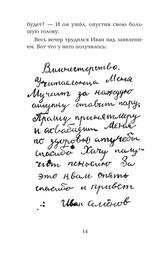 будет? — И он ушёл, опустив свою боль-
шую голову.
Весь вечер трудился Иван над заявлени-
ем. Вот что у него получилось:
Вминистерство.
Учительница Меня
Мучит за каждую
ашупку ставит пару.
Прашу принять меру
и асвабадить Меня
по здоровью атучебы
спасибо Хачу палу-
чит пеньсию За
это нвам опять
спасибо и привет
Иван Семёнов
14